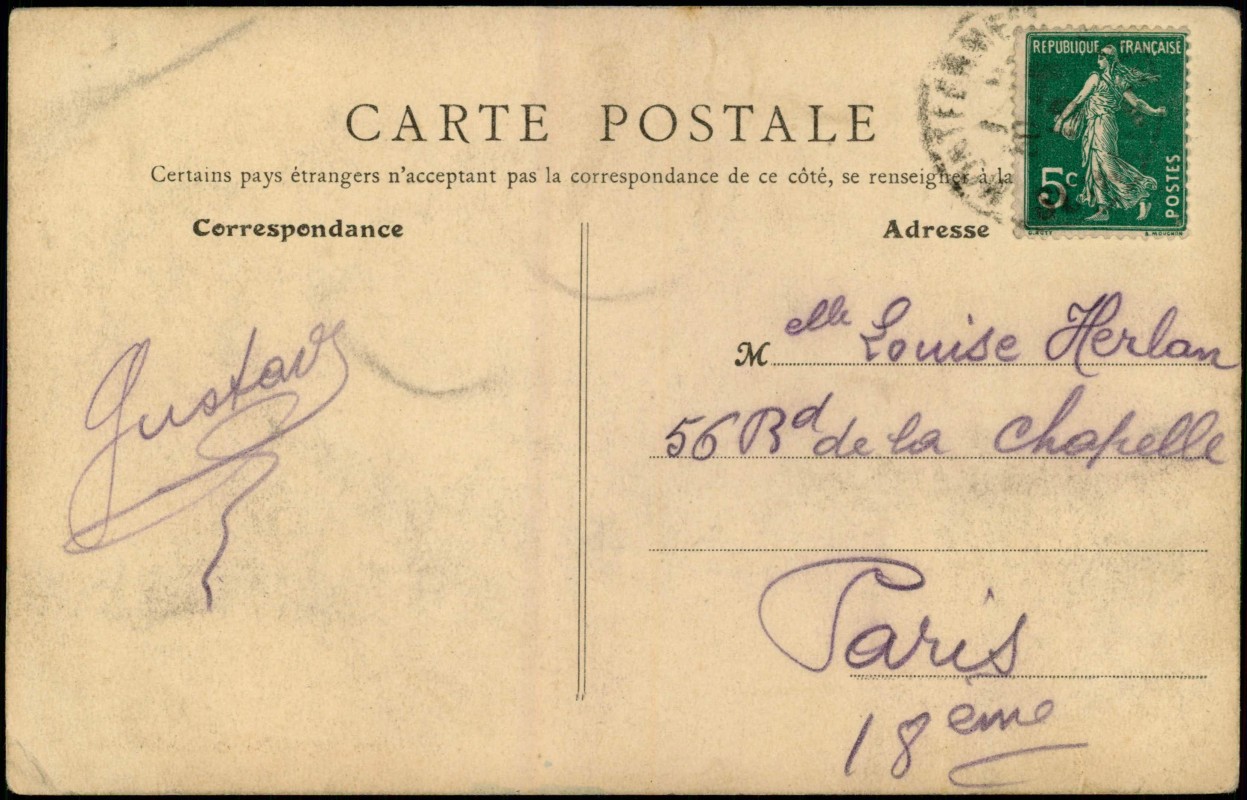 CARTE POSTALE
Certains pays étrangers n'acceptant pas la correspondance de ce côté, se renseigner à la
REPUBLIQUE FRANÇAISE
5c
POSTES
O. ROTY
E. MOUCHON
MONTFERME
Correspondance
Adresse
Gustave
Melle Louise Herlan
56 Bd de la Chapelle
Paris
18ème